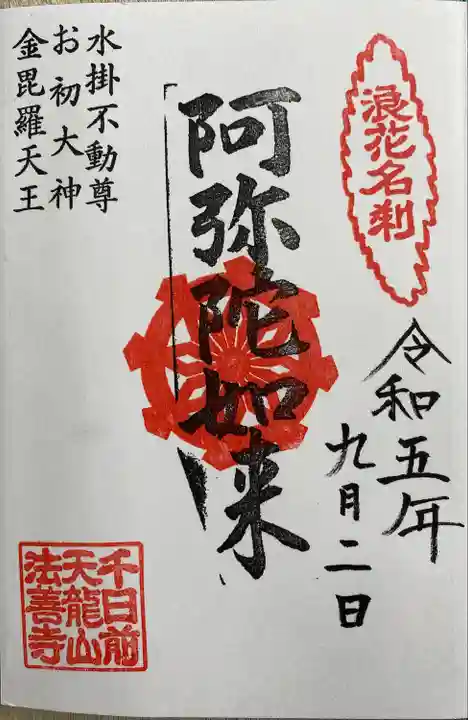 浪花名刹
令和五年
九月二日
阿弥陀如来
水掛不動尊
お初大神
金毘羅天王
千日前
天龍山
法善寺